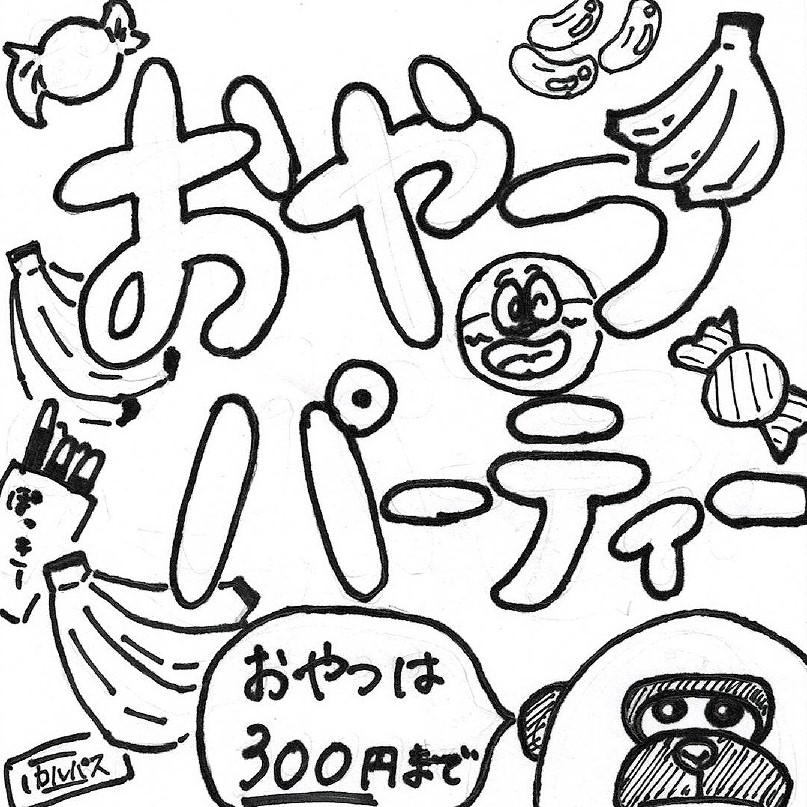 おやつ
パーティー
ぽっきー
おやつは
300円まで
カルパス